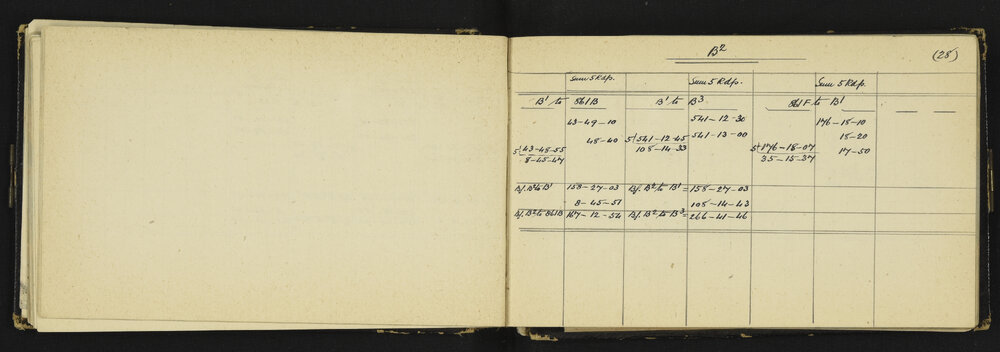 B²
(28)
Sum 5 Rdgs. Sum 5 Rdgs. Sum 5 Rdgs.
B¹ to 861B B¹ to B³ 861F to B¹
43-49-10 541-12-30 176-18-10
48-40 5(541-12-45 541-13-00 18-20
5(43-48-55 108-14-33 5(176-18-07 17-50
8-45-47 35-15-37
B/. B² to B¹ 158-27-03 B/. B² to B¹ = 158-27-03
8-45-51 108-14-43
B/. B² to 861B 167-12-54 B/. B² to B³ = 266-41-46